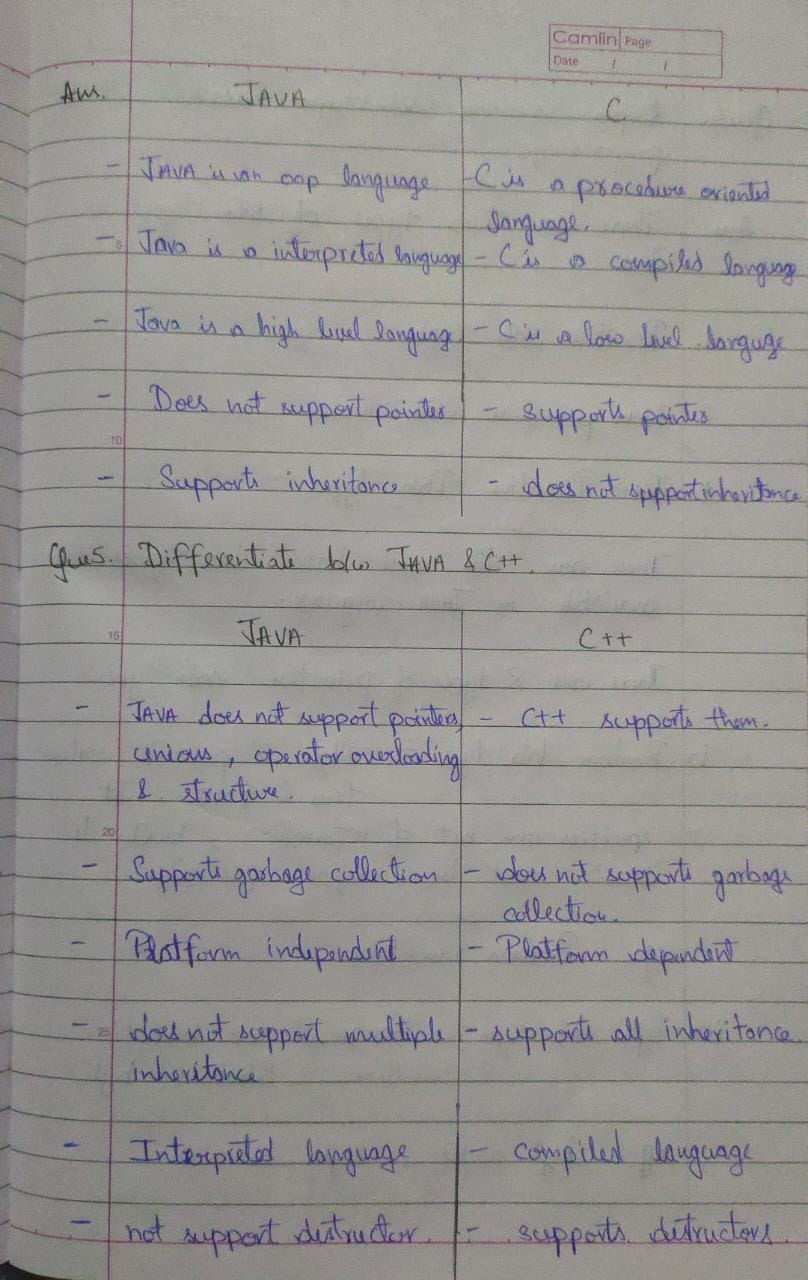 Camlin Page
Date / /
Ans. JAVA C
- JAVA is an oop language - C is a procedure oriented
language.
5
- Java is a interpreted language - C is a compiled language
- Java is a high level language - C is a low level languge
- Does not support pointer - supports pointer
10
- Supports inheritance - does not support inheritance
Ques. Differentiate b/w JAVA & C++.
15 JAVA C++
- JAVA does not support pointers, - C++ supports them.
unions, operator overloading
& structure.
20
- Supports garbage collection - does not supports garbage
collection.
- Platform independent - Platform dependent
25
- does not support multiple - supports all inheritance.
inheritance
- Interpreted language - compiled language
- not support destructor. - supports destructors.